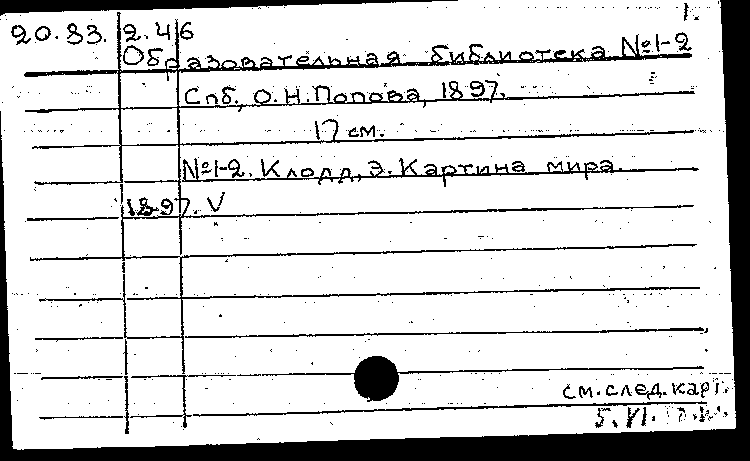 1.
20.83.2.46
Образовательная библиотека №1-2
Спб., О.Н.Попова, 1897.
17 см.
№1-2. Клодд, Э. Картина мира.
1897. V
см. след. карт.
5.VI.